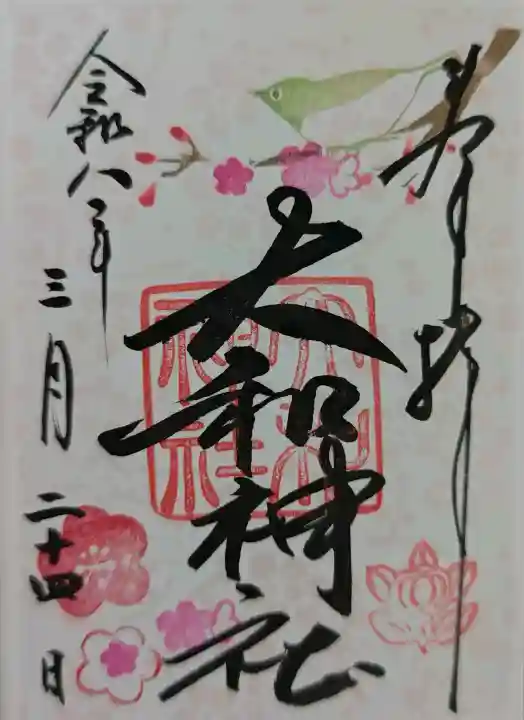 奉拝
大和神社
大和神社
令和八年
三月二十四日